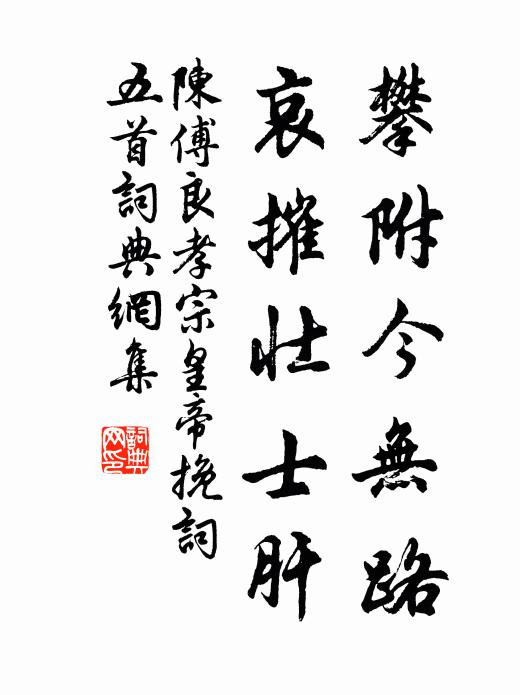 攀附今無路
哀摧壯士肝
陳傅良孝宗皇帝挽詞
五首詞典網集
詞典网印